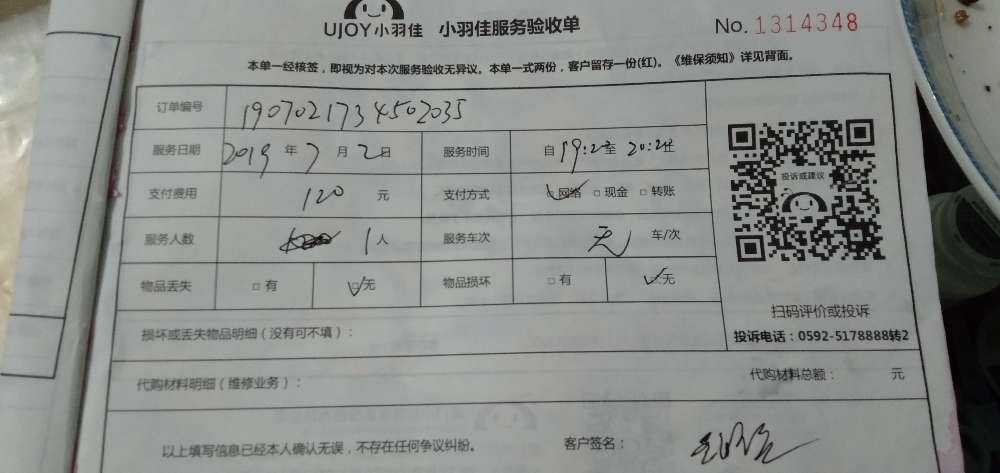 UJOY小羽佳 小羽佳服务验收单 No. 1314348
本单一经核签，即视为对本次服务验收无异议。本单一式两份，客户留存一份(红)。《维保须知》详见背面。
订单编号 1907021734502035
服务日期 2019 年 7 月 2 日 服务时间 自 19:2 至 20:2
支付费用 120 元 支付方式 ☑网络 □现金 □转账
服务人数 1 人 服务车次 无 车/次
物品丢失 □有 ☑无 物品损坏 □有 ☑无
投诉或建议
扫码评价或投诉
投诉电话：0592-5178888转2
损坏或丢失物品明细（没有可不填）：
代购材料明细（维修业务）： 代购材料总额： 元
以上填写信息已经本人确认无误，不存在任何争议纠纷。 客户签名：